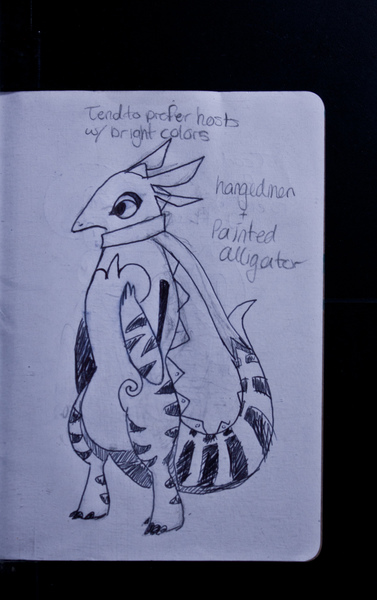 Tend to prefer hosts
w/ bright colors
hangedmen
+
Painted
alligator